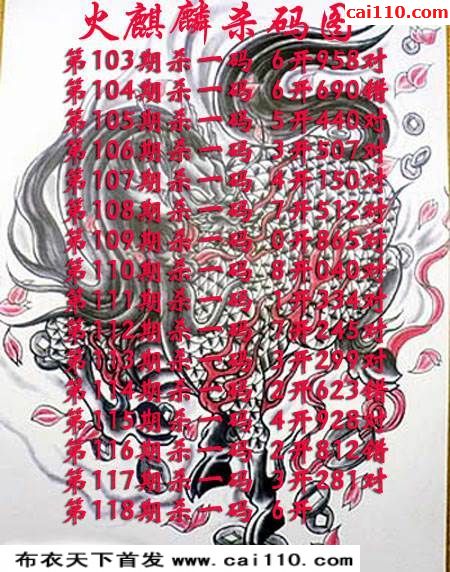 cai110.com
火麒麟杀码图
第103期杀一码 6开958对
第104期杀一码 6开690错
第105期杀一码 5开440对
第106期杀一码 3开507对
第107期杀一码 4开150对
第108期杀一码 7开512对
第109期杀一码 0开865对
第110期杀一码 8开040对
第111期杀一码 1开334对
第112期杀一码 7开245对
第113期杀一码 3开299对
第114期杀一码 2开623错
第115期杀一码 4开928对
第116期杀一码 2开812错
第117期杀一码 3开281对
第118期杀一码 6开
布衣天下首发 www.cai110.com